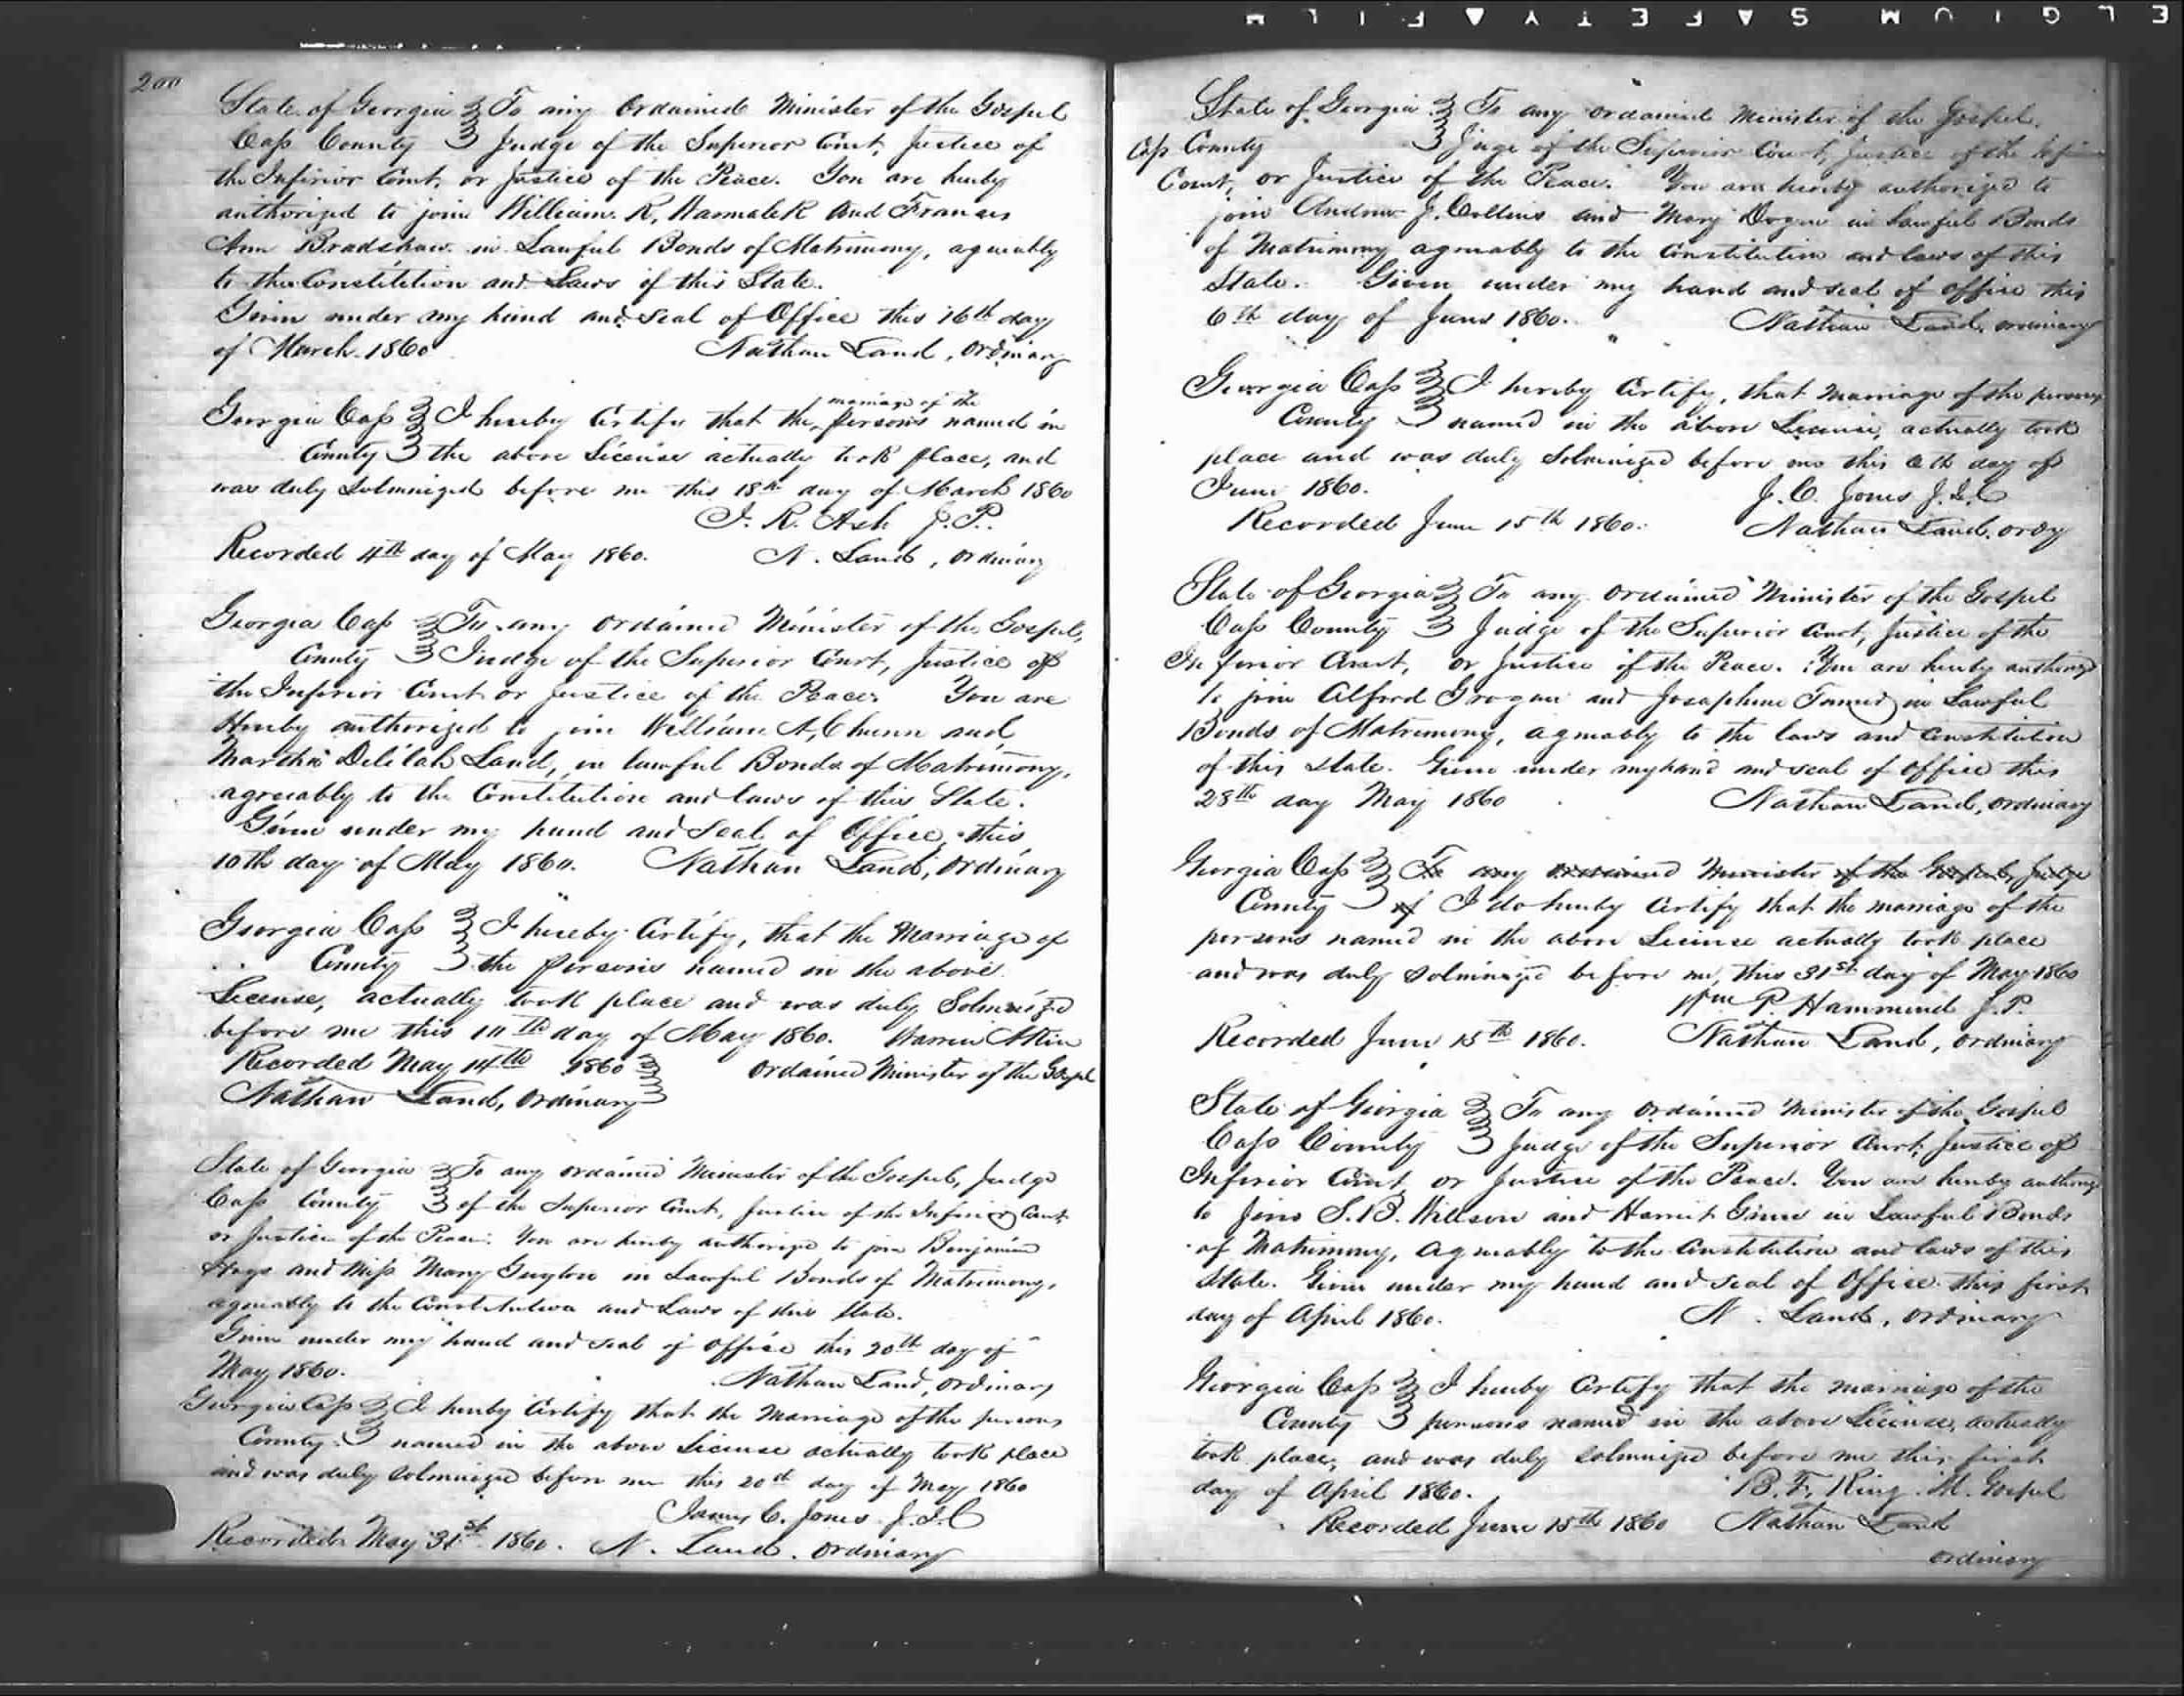 200
State of Georgia To any Ordained Minister of the Gospel
Cass County Judge of the Superior Court, Justice of
the Inferior Court, or Justice of the Peace. You are hereby
authorized to join William. R, and Frances
Ann Bradshaw in Lawful Bonds of Matrimony, agreeably
to the Constitition and Laws of this State.
Given under my hand and Seal of Office this 16th day
of March. 1860 Nathan Land, Ordinary
Georgia Cass I hereby Certify that the, marriage of the persons named in
County the above License actually took place, and
was duly Solemnized before me this 18th day of March 1860
J. R. Ash J. P.
Recorded 4th day of May 1860. N. Land, Ordinary
Georgia Cass To any Ordained Minister of the Gospel,
County Judge of the Superior Court, Justice of
the Inferior Court or Justice of the Peace. You are
Hereby authorized to join William A, Chunn and
Martha Delilah Land, in lawful Bonds of Matrimony,
agreeably to the Constitution and laws of this State.
Given under my hand and Seal of Office, this
10th day of May 1860. Nathan Land, Ordinary
Georgia Cass I hereby Certify, that the Marriage of
County the persons named in the above
License, actually took place and was duly Solemnized
before me this 10th day of May 1860. Warren Akin
Recorded May 14th 1860 Ordained Minister of the Gospel
Nathan Land, Ordinary
State of Georgia To any ordained Minister of the Gospel, Judge
Cass County of the Superior Court, Justice of the Inferior Court
or Justice of the Peace. You are hereby authorize to join Benjamin
Hays and Miss Mary Guyton in Lawful Bonds of Matrimony,
agreeably to the Constitution and Laws of this State.
Given under my hand and seal of Office this 20th day of
May 1860. Nathan Land, Ordinary
Georgia Cass I hereby Certify that the Marriage of the persons
County named in the above License actually took place
and was duly Solemnized before me this 20th day of May 1860
James C. Jones. J.I.C
Recorded May 31st 1860. N. Land. Ordinary
State of Georgia To any ordained Minister of the Gospel.
Cass County Juge of the Superior Court, Justice of the
Court, or Justice of the Peace. You are hereby authorized to
join Andrew J. Collins and Mary Dogan in Lawful Bonds
of Matrimony agreeably to the Constitution and laws of this
State. Given under my hand and seal of office this
6th day of June 1860. Nathan Land, Ordinary
Georgia Cass I hereby Certify, that marriage of the persons
County named in the above License, actually took
place and was duly Solemnized before me this 6th day of
June 1860. J. C. Jones J.I.C
Recorded June 15th 1860. Nathan Land. ordy
State of Georgia To any Ordained Minister of the Gospel
Cass County Judge of the Superior Court, Justice of the
Inferior Court, or Justice of the Peace. You are hereby
to join Alfred Grogan and Josaphine in Lawful
Bonds of Matrimony, agreeably to the laws and Constitution
of this State. Given under my hand and seal of office this
28th day May 1860 Nathan Land, Ordinary
Georgia Cass To any ordained Minister of the Gospel, Judge
County of I do hereby Certify that the marriage of the
persons named in the above License actually took place
and was duly Solemnize before me, this 31st day of May 1860
Wm P. Hammond J.P.
Recorded June 15th 1860. Nathan Land, Ordinary
State of Georgia To any Ordained Minister of the Gospel
Cass County Judge of the Superior Court, Justice of
Inferior Court or Justice of the Peace. You are hereby
to join S.B. Willson and Harriet in Lawful Bonds
of Matrimony, agreeably to the Constitution and laws of this
State. Given under my hand and seal of Office this first
day of April 1860. N. Land, Ordinary
Georgia Cass I hereby Certify that the marriage of the
County persons named in the above License, actually
took place, and was duly Solemnize before me this first
day of April 1860. B. F. King. M. Gospel
Recorded June 15th 1860 Nathan Land
Ordinary